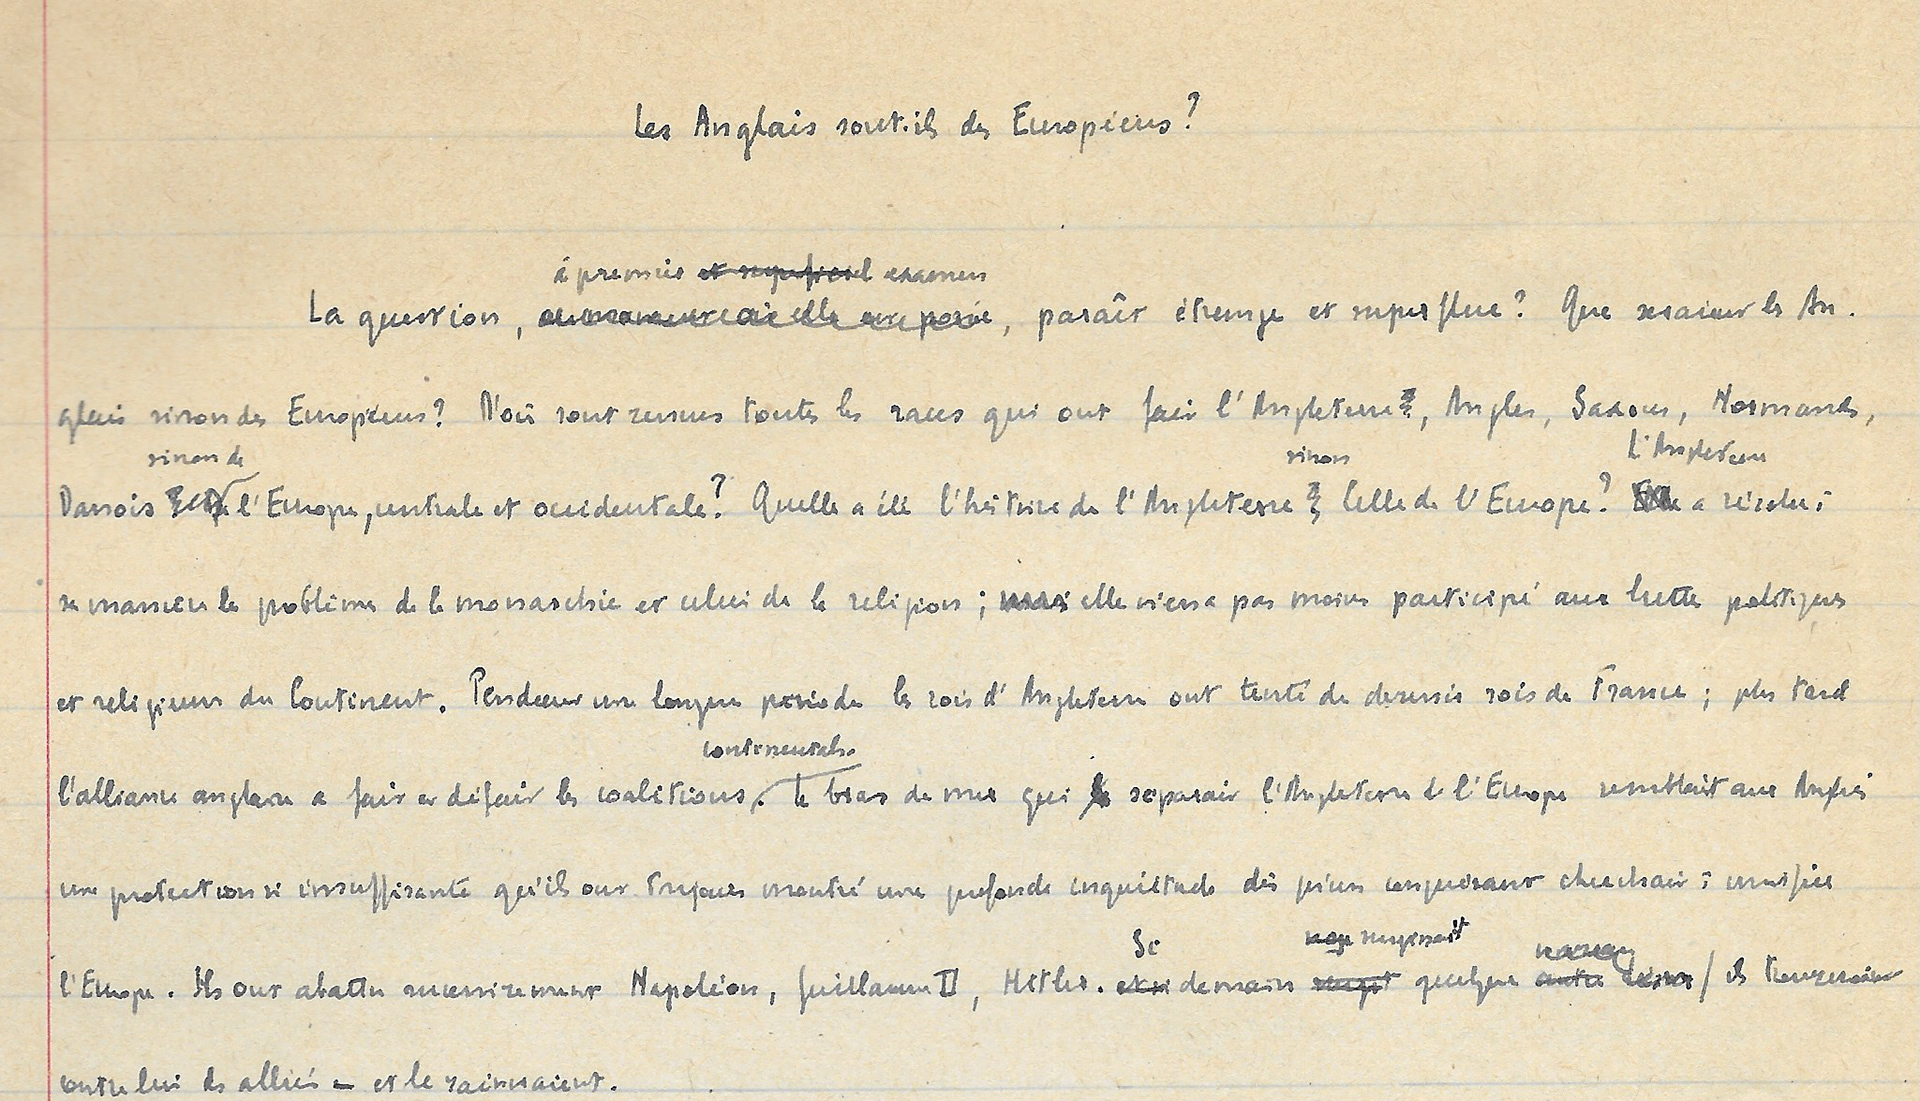 Les Anglais sont-ils des Européens?
à premier et superficiel examen
La question, paraît étrange et superflue? Que seraient les An-
glais sinon des Européens? D'où sont venues toutes les races qui ont fait l'Angleterre, Angles, Saxons, Normands,
sinon de sinon L'Angleterre
Danois l'Europe, centrale et occidentale? Quelle a été l'histoire de l'Angleterre Celle de l'Europe? a résolu à
sa manière le problème de la monarchie et celui de la religion; mais elle n'en a pas moins participé aux luttes politiques
et religieuses du Continent. Pendant une longue période les rois d'Angleterre ont tenté de devenir rois de France; plus tard
continentales.
l'alliance anglaise a fait et défait les coalitions. Le bras de mer qui séparait l'Angleterre de l'Europe semblait aux Anglais
une protection si insuffisante qu'ils ont toujours montré une profonde inquiétude dès qu'un conquérant cherchait à unifier
Si surgissait nouveau
l'Europe. Ils ont abattu successivement Napoléon, Guillaume II, Hitler. demain surgit quelque autre ils trouveraient
contre lui des alliés – et le vaincraient.